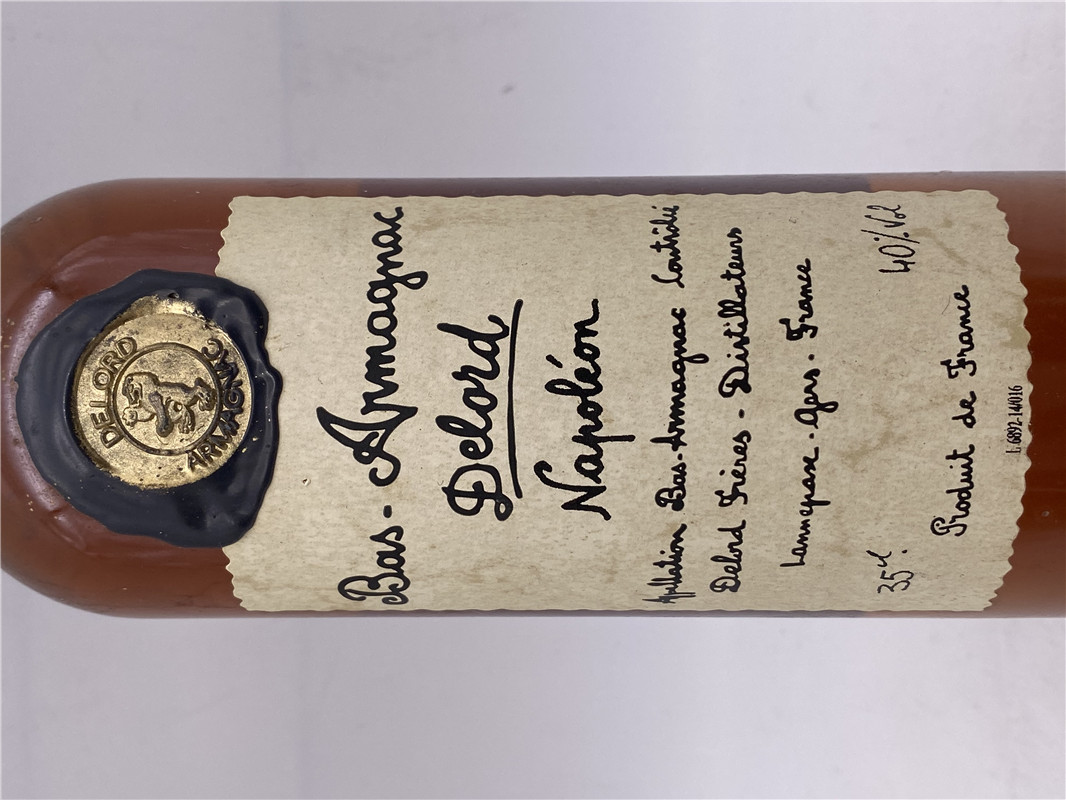 DELORD
ARMAGNAC
Bas-Armagnac
Delord
Napoléon
Appellation Bas-Armagnac Contrôlée
Delord Frères - Distillateurs
Lannepax - Gers - France
35cl. 40%Vol
Produit de France
L6892-14/016